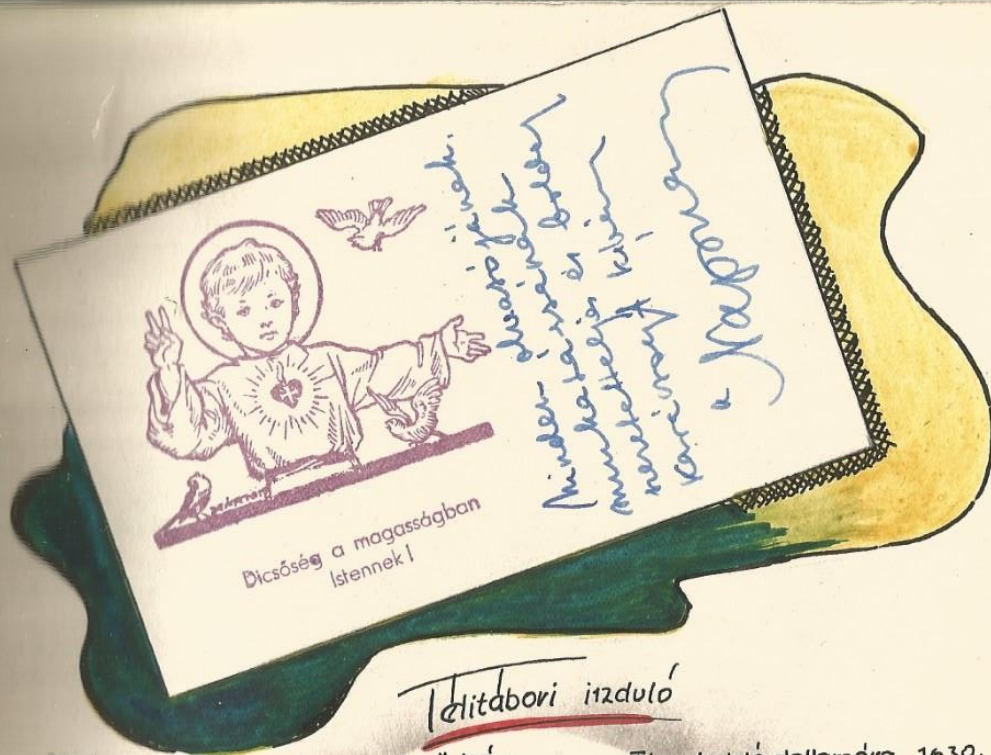 Dicsőség a magasságban
Istennek!
Minden olvasójának
munkatársának
szeretetteljes és boldog
karácsonyt kíván
a
Télitábori inzduló
dallamára 1930.